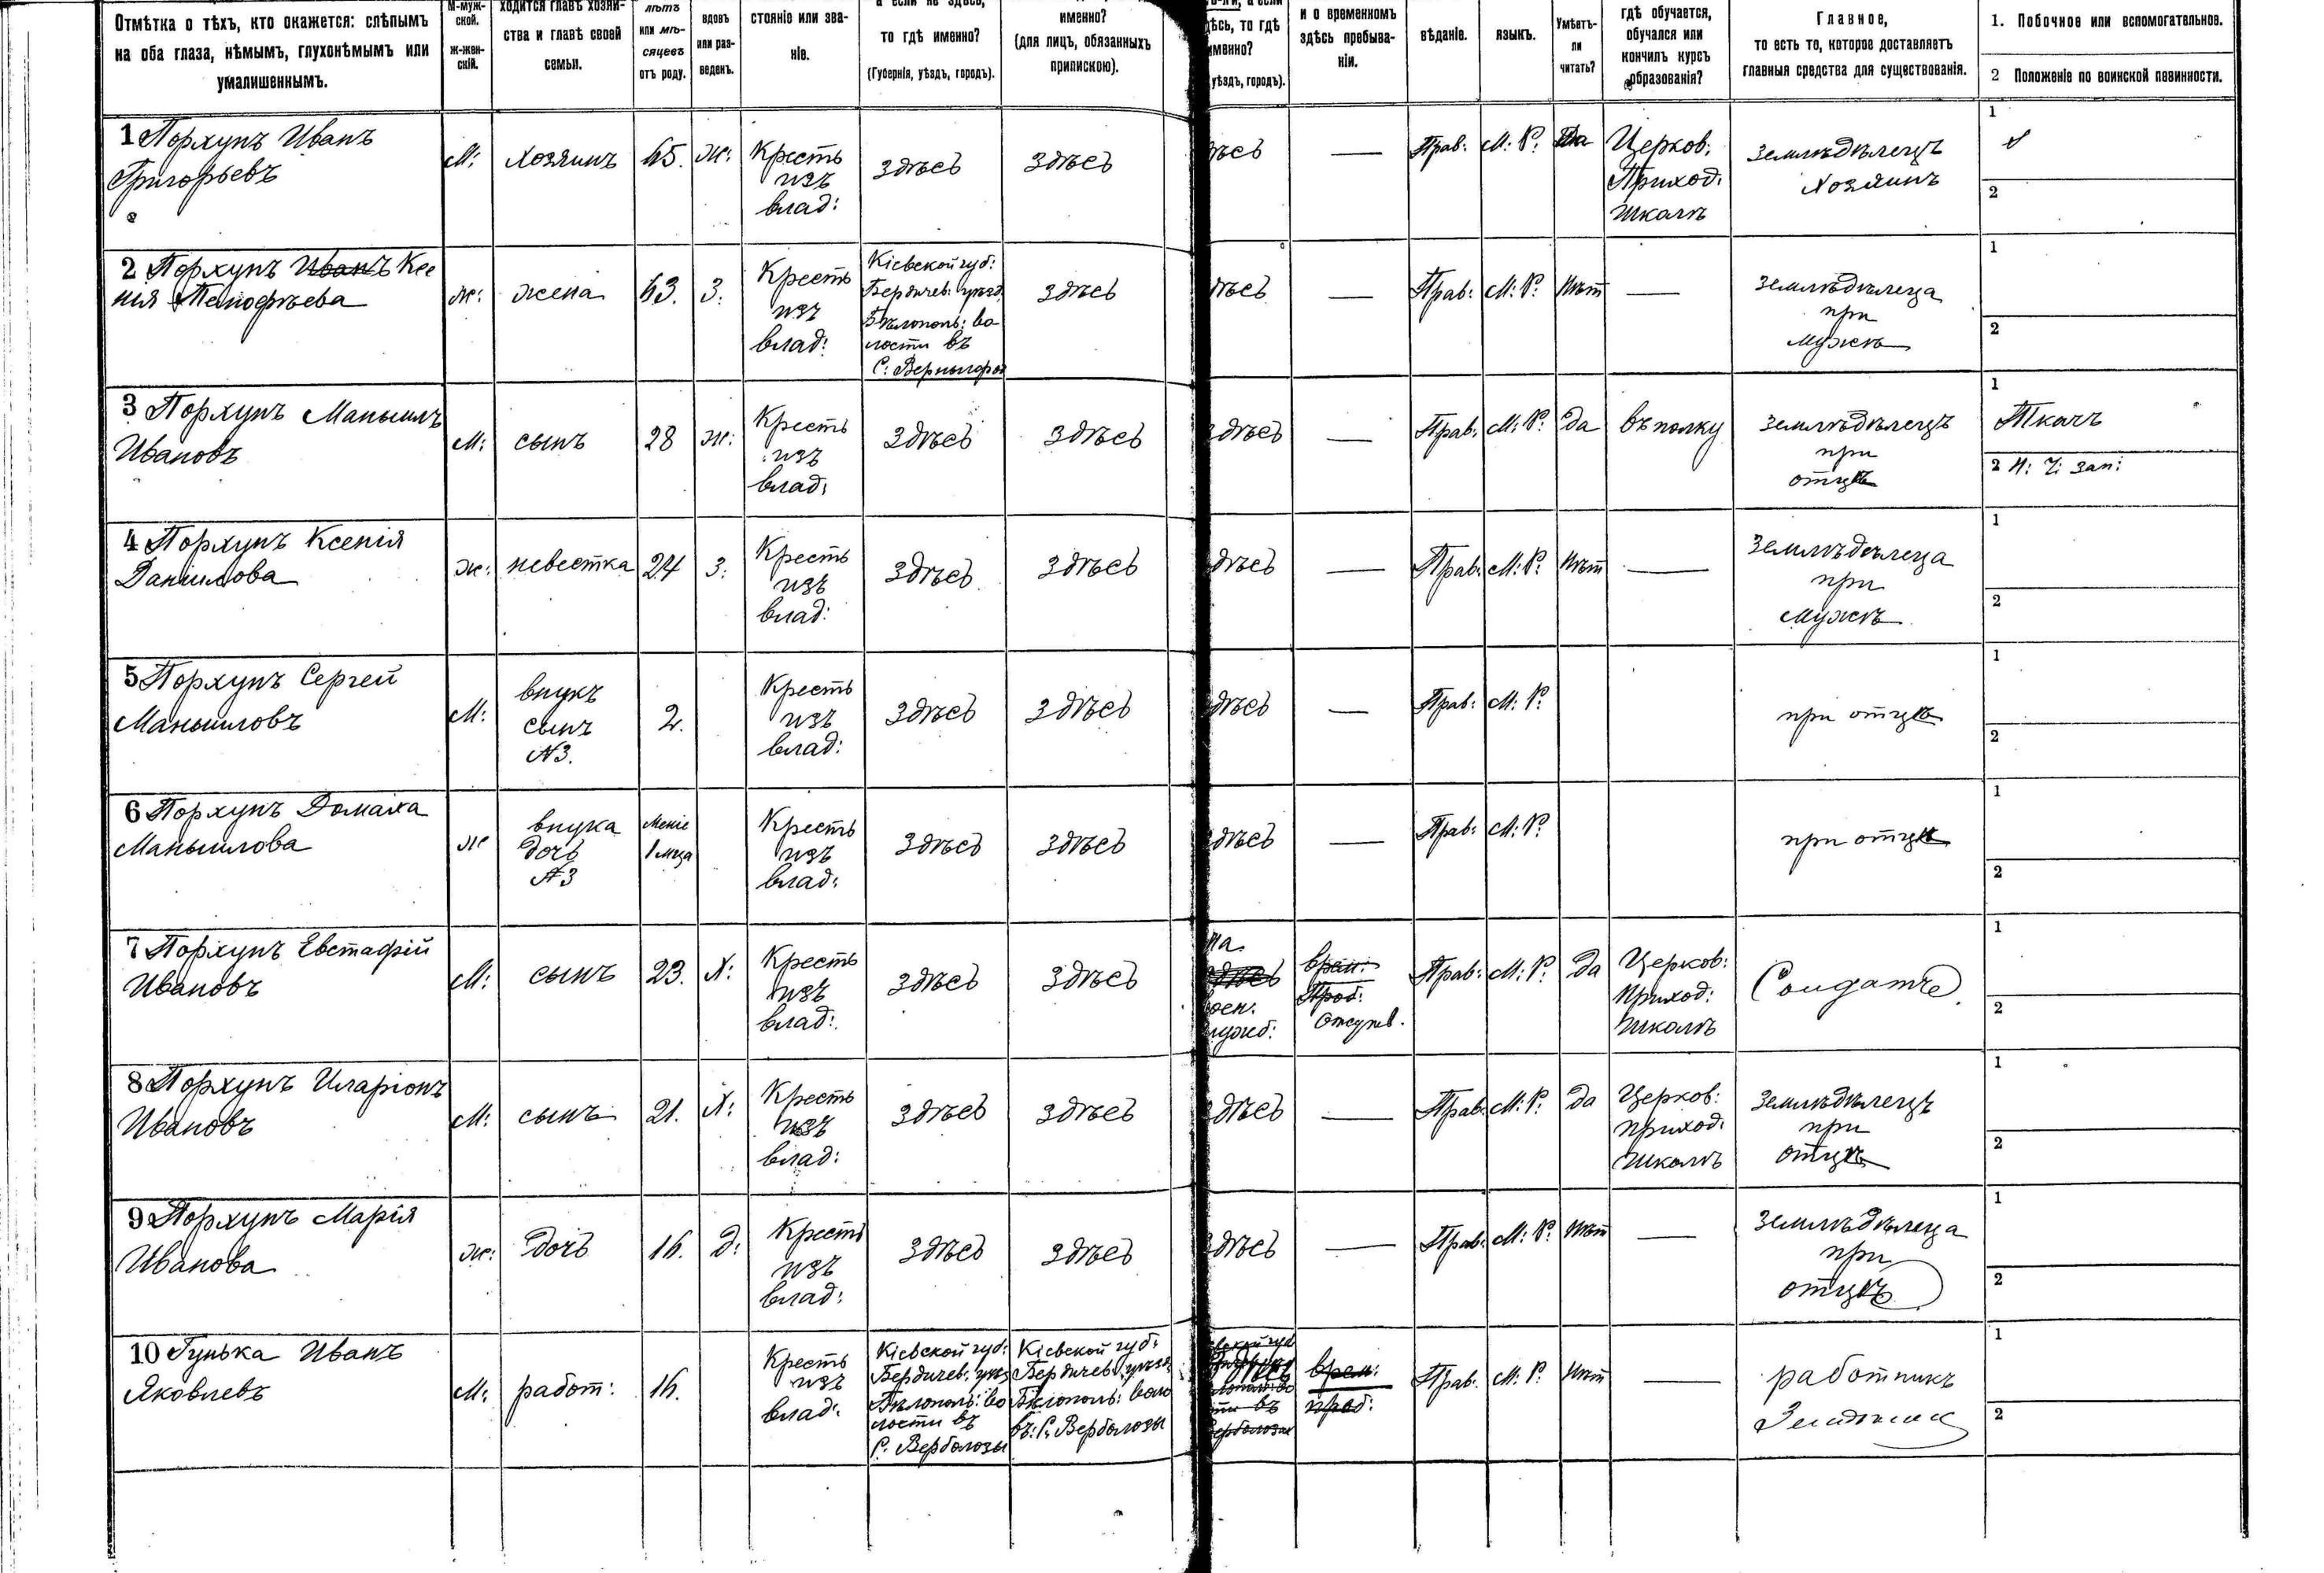 Отмѣтка о тѣхъ, кто окажется: слѣпымъ
на оба глаза, нѣмымъ, глухонѣмымъ или
умалишеннымъ.
М-муж-
ской.
ж-жен-
скій.
ходится главѣ хозяй-
ства и главѣ своей
семьи.
лѣтъ
или мѣ-
сяцевъ
отъ роду.
вдовъ
или раз-
веденъ.
стояніе или зва-
ніе.
а если не здѣсь,
то гдѣ именно?
(Губернія, уѣздъ, городъ).
именно?
(для лицъ, обязанныхъ
припискою).
дѣсь, то гдѣ
именно?
уѣздъ, городъ).
и о временномъ
здѣсь пребыва-
ніи.
вѣданіе.
языкъ.
Умѣетъ-
ли
читать?
гдѣ обучается,
обучался или
кончилъ курсъ
образованія?
Главное,
то есть то, которое доставляетъ
главныя средства для существованія.
1. Побочное или вспомогательное.
2 Положеніе по воинской повинности.
1 Порхунъ Иванъ
Григорьевъ
М:
хозяинъ
45.
ж:
Кресть
изъ
влад:
здѣсь
здѣсь
ѣсь
—
Прав:
М: Р:
Да
Церков:
Приход:
Школѣ
земледѣлецъ
Хозяинъ
1
2
2 Порхунъ Иванъ Ксе
нія
ж:
жена
43.
З:
Кресть
изъ
влад:
Кіевской губ:
Бердичев: уѣзд
Бѣлополь: во
лости въ
С:
здѣсь
дѣсь
—
Прав:
М: Р:
Нѣт
—
земледѣлеца
при
мужѣ
1
2
3 Порхунъ Маныилъ
Ивановъ
М:
сынъ
28
ж:
Кресть
изъ
влад:
здѣсь
здѣсь
здѣсь
—
Прав:
М: Р:
да
въ полку
земледѣлецъ
при
отцѣ
1
Ткачъ
2 Н: Ч: зап:
4 Порхунъ Ксенія
Данилова
ж:
невестка
24
З:
Кресть
изъ
влад:
здѣсь
здѣсь
дѣсь
—
Прав:
М: Р:
Нѣт
—
земледѣлеца
при
мужѣ
1
2
5 Порхунъ Сергей
Маныиловъ
М:
внукъ
сынъ
№3.
2.
Кресть
изъ
влад:
здѣсь
здѣсь
дѣсь
—
Прав:
М: Р:
при отцѣ
1
2
6 Порхунъ Домаха
Маныилова
ж
внука
дочь
№3
Меніе
1 мца
Кресть
изъ
влад:
здѣсь
здѣсь
дѣсь
—
Прав:
М: Р:
при отцѣ
1
2
7 Порхунъ Евстафій
Ивановъ
М:
сынъ
23.
Х:
Кресть
изъ
влад:
здѣсь
здѣсь
на
здѣсь
воен.
служб:
врем:
Проб:
Отсутв.
Прав:
М: Р:
да
Церков:
Приход:
Школѣ
1
2
8 Порхунъ Иларіонъ
Ивановъ
М:
сынъ
21.
Х:
Кресть
изъ
влад:
здѣсь
здѣсь
дѣсь
—
Прав:
М: Р:
да
Церков:
приход:
Школѣ
земледѣлецъ
при
отцѣ
1
2
9 Порхунъ Марія
Иванова
ж:
дочь
16.
д:
Кресть
изъ
влад:
здѣсь
здѣсь
здѣсь
—
Прав:
М: Р:
Нѣт
—
земледѣлеца
при
отцѣ
1
2
10 Гунька Иванъ
Яковлевъ
М:
работ:
16.
Кресть
изъ
влад:
Кіевской губ:
Бердичев: уѣз
Бѣлополь: во
лости въ
С: Верболозы
Кіевской губ:
Бердичев: уѣзд
Бѣлополь: воло
въ: С: Верболозы
врем:
проб:
Прав:
М: Р:
Нѣт
—
работникъ
1
2